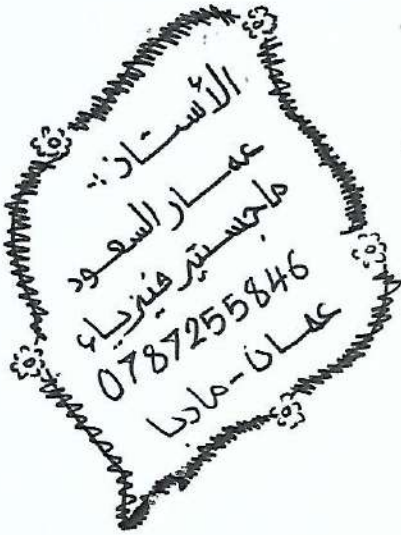 الأستاذ:
عمار السعود
ماجستير فيزياء
0787255846
عمان - مادبا